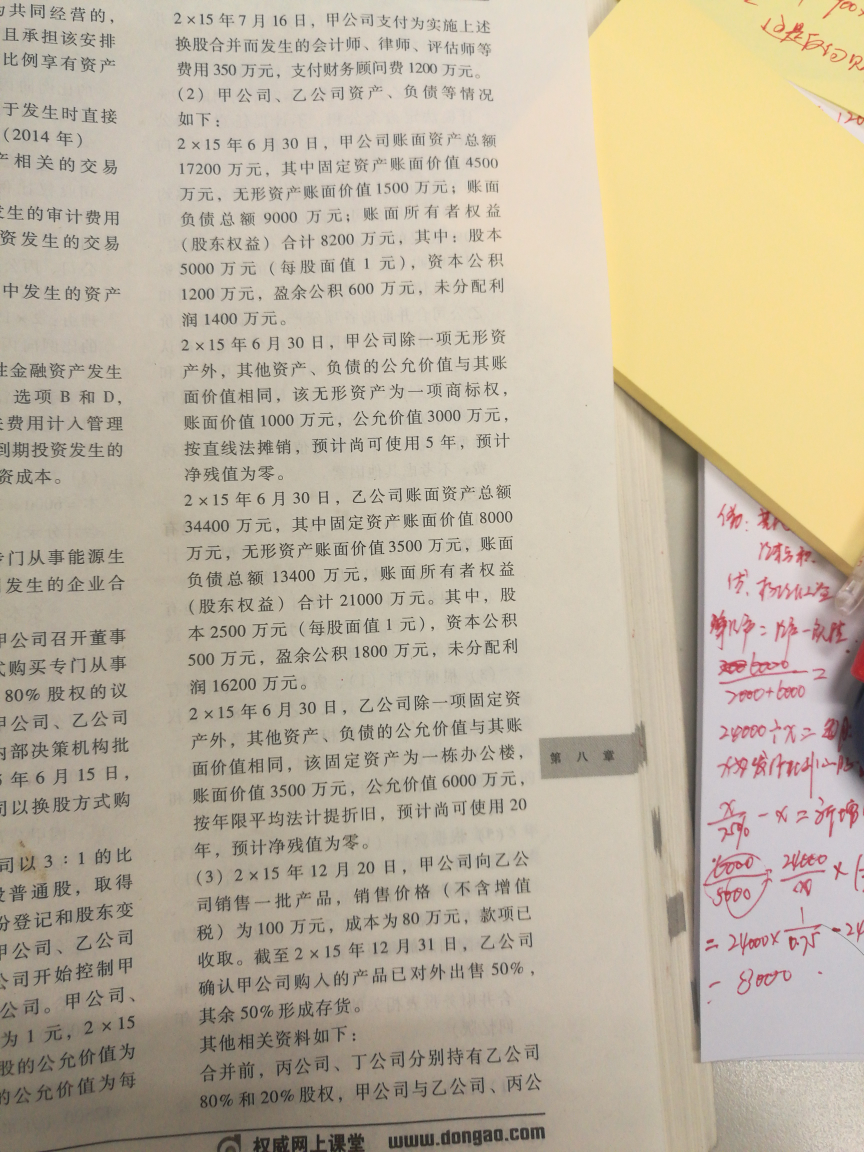 共同经营的，
且承担该安排
比例享有资产
于发生时直接
（2014 年）
产相关的交易
生的审计费用
资发生的交易
中发生的资产
性金融资产发生
选项 B 和 D，
费用计入管理
到期投资发生的
资成本。
专门从事能源生
发生的企业合
甲公司召开董事
式购买专门从事
80% 股权的议
甲公司、乙公司
内部决策机构批
年 6 月 15 日，
司以换股方式购
司以 3∶1 的比
股普通股，取得
份登记和股东变
甲公司、乙公司
公司开始控制甲
公司。甲公司、
为 1 元，2×15
股的公允价值为
的公允价值为每
2×15 年 7 月 16 日，甲公司支付为实施上述
换股合并而发生的会计师、律师、评估师等
费用 350 万元，支付财务顾问费 1200 万元。
（2）甲公司、乙公司资产、负债等情况
如下：
2×15 年 6 月 30 日，甲公司账面资产总额
17200 万元，其中固定资产账面价值 4500
万元，无形资产账面价值 1500 万元；账面
负债总额 9000 万元；账面所有者权益
（股东权益）合计 8200 万元，其中：股本
5000 万元（每股面值 1 元），资本公积
1200 万元，盈余公积 600 万元，未分配利
润 1400 万元。
2×15 年 6 月 30 日，甲公司除一项无形资
产外，其他资产、负债的公允价值与其账
面价值相同，该无形资产为一项商标权，
账面价值 1000 万元，公允价值 3000 万元，
按直线法摊销，预计尚可使用 5 年，预计
净残值为零。
2×15 年 6 月 30 日，乙公司账面资产总额
34400 万元，其中固定资产账面价值 8000
万元，无形资产账面价值 3500 万元，账面
负债总额 13400 万元，账面所有者权益
（股东权益）合计 21000 万元。其中，股
本 2500 万元（每股面值 1 元），资本公积
500 万元，盈余公积 1800 万元，未分配利
润 16200 万元。
2×15 年 6 月 30 日，乙公司除一项固定资
产外，其他资产、负债的公允价值与其账
面价值相同，该固定资产为一栋办公楼，
账面价值 3500 万元，公允价值 6000 万元，
按年限平均法计提折旧，预计尚可使用 20
年，预计净残值为零。
（3）2×15 年 12 月 20 日，甲公司向乙公
司销售一批产品，销售价格（不含增值
税）为 100 万元，成本为 80 万元，款项已
收取。截至 2×15 年 12 月 31 日，乙公司
确认甲公司购入的产品已对外出售 50%，
其余 50% 形成存货。
其他相关资料如下：
合并前，丙公司、丁公司分别持有乙公司
80% 和 20% 股权，甲公司与乙公司、丙公
权威网上课堂 www.dongao.com
第八章
6000
7000+6000
24000÷x=
x/25% - x =
= 24000 × 1/0.75 - 24
= 8000